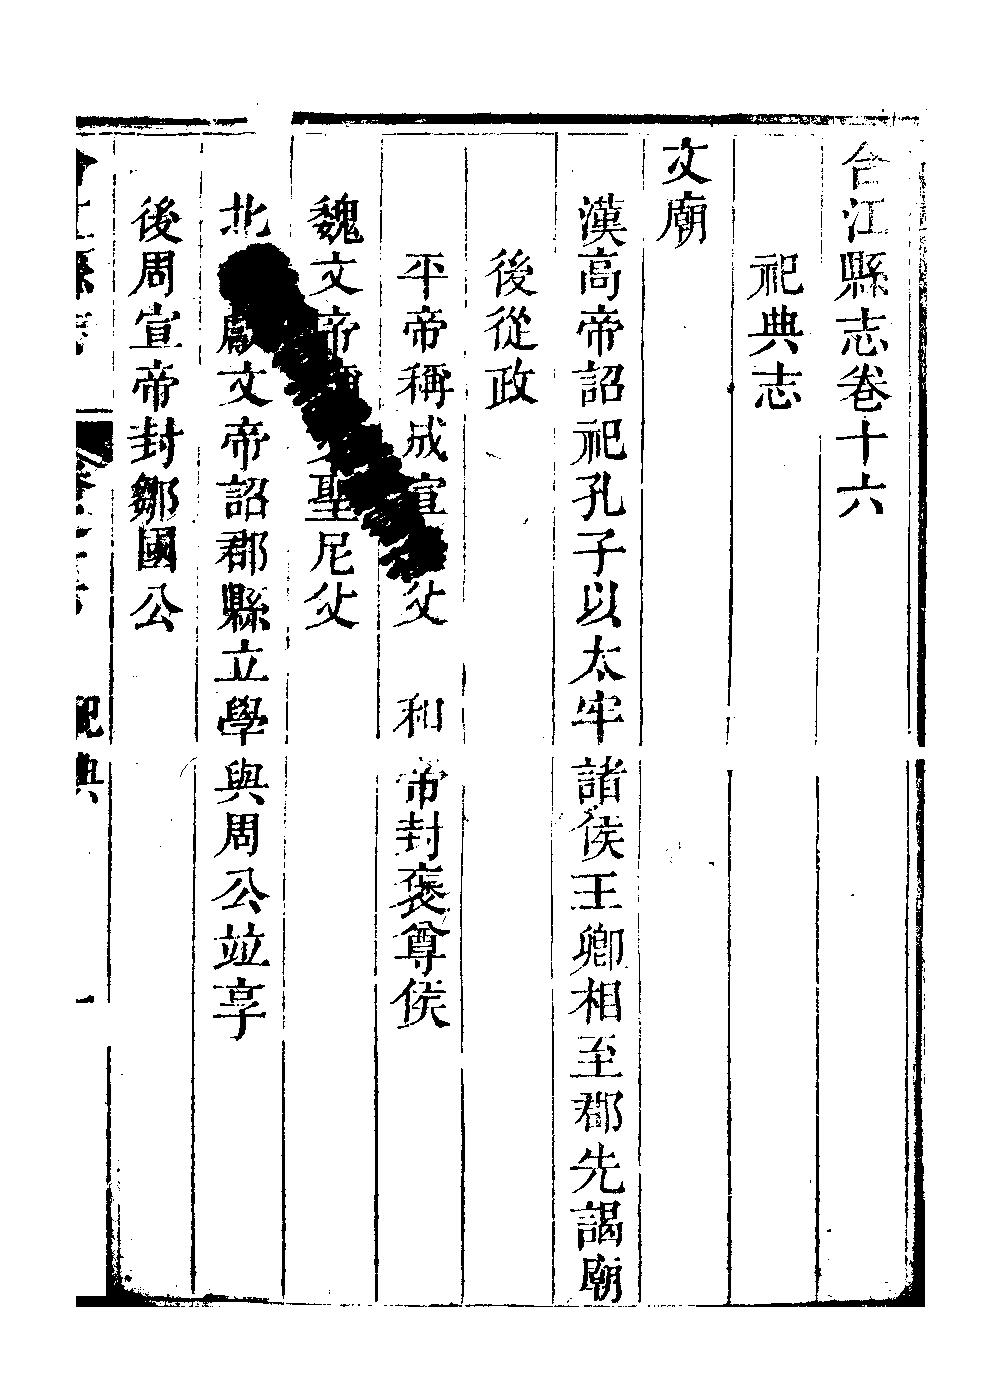 合江縣志卷十六
祀典志
文廟
漢高帝詔祀孔子以太牢諸侯王卿相至郡先謁廟
後從政
平帝稱成宣父 和帝封褒尊侯
魏文帝聖尼父
北獻文帝詔郡縣立學與周公竝享
後周宣帝封鄒國公
合江縣志 祀典 一